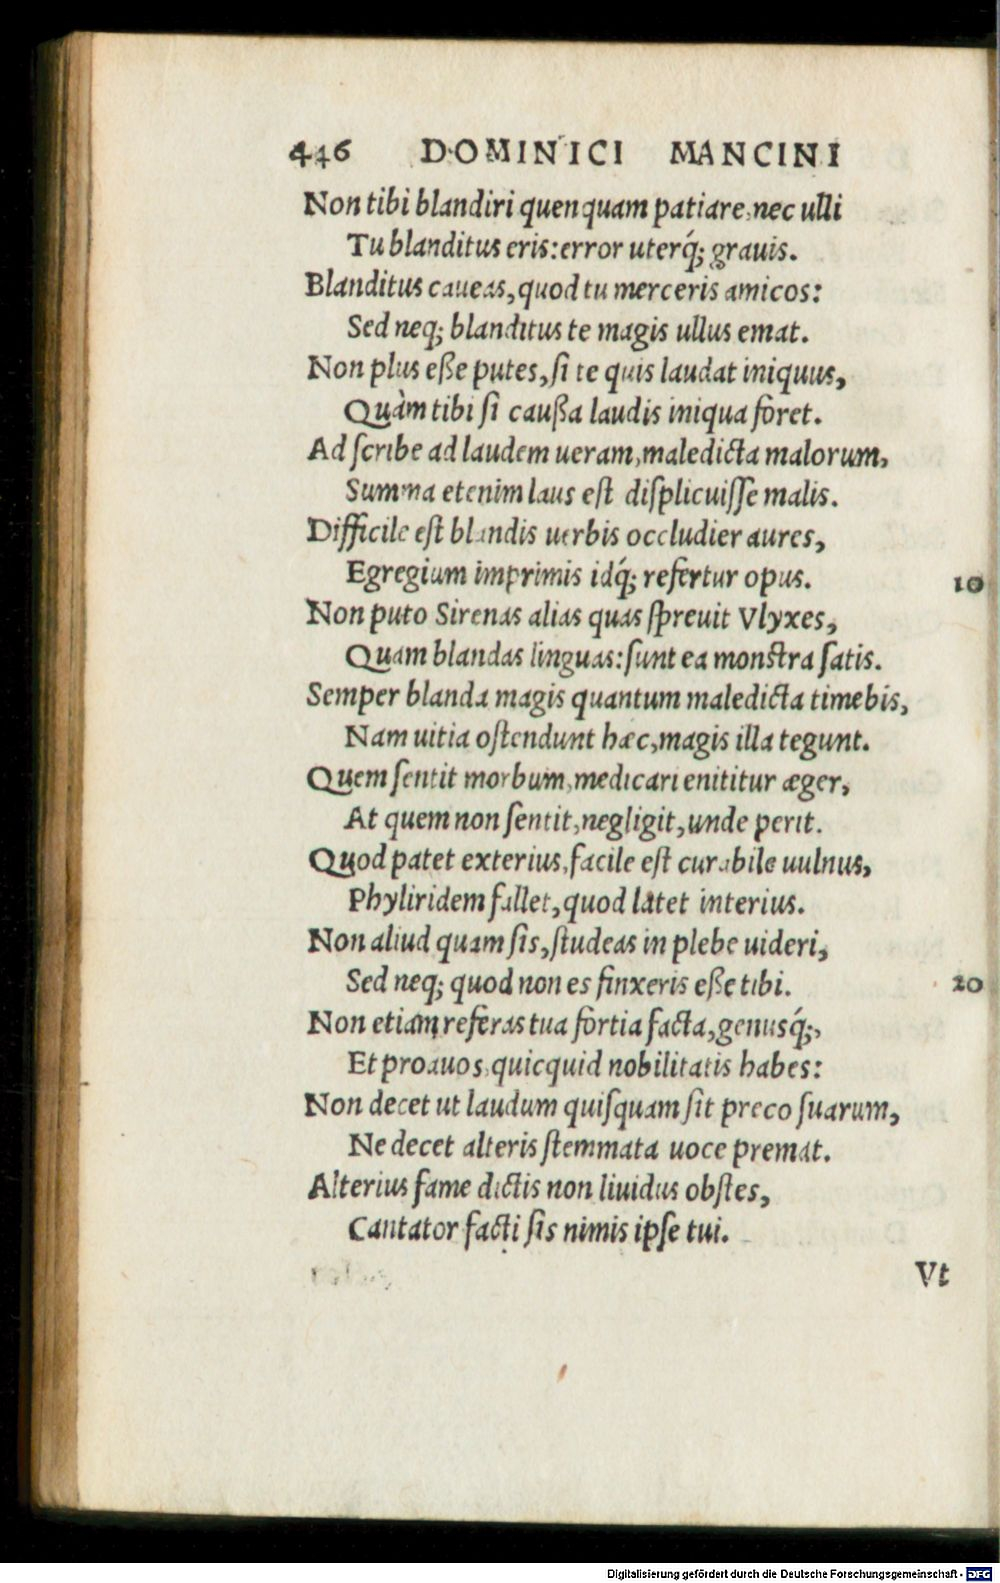 446 DOMINICI MANCINI
Non tibi blandiri quenquam patiare, nec ulli
Tu blanditus eris: error uterq́; grauis.
Blanditus caueas, quod tu merceris amicos:
Sed neq; blanditus te magis ullus emat.
Non plus eße putes, ſi te quis laudat iniquus,
Quàm tibi ſi caußa laudis iniqua foret.
Ad ſcribe ad laudem ueram, maledicta malorum,
Summa etenim laus eſt diſplicuiſſe malis.
Difficile eſt blandis uerbis occludier aures,
Egregium imprimis idq́; refertur opus.
10
Non puto Sirenas alias quas ſpreuit Vlyxes,
Quam blandas linguas: ſunt ea monſtra ſatis.
Semper blanda magis quantum maledicta timebis,
Nam uitia oſtendunt hæc, magis illa tegunt.
Quem ſentit morbum, medicari enititur æger,
At quem non ſentit, negligit, unde perit.
Quod patet exterius, facile eſt curabile uulnus,
Phyliridem fallet, quod latet interius.
Non aliud quam ſis, ſtudeas in plebe uideri,
Sed neq; quod non es finxeris eße tibi.
20
Non etiam referas tua fortia facta, genusq́;,
Et proauos, quicquid nobilitatis habes:
Non decet ut laudum quiſquam ſit preco ſuarum,
Ne decet alteris ſtemmata uoce premat.
Alterius fame dictis non liuidus obſtes,
Cantator facti ſis nimis ipſe tui.
Vt
Digitalisierung gefördert durch die Deutsche Forschungsgemeinschaft - DFG